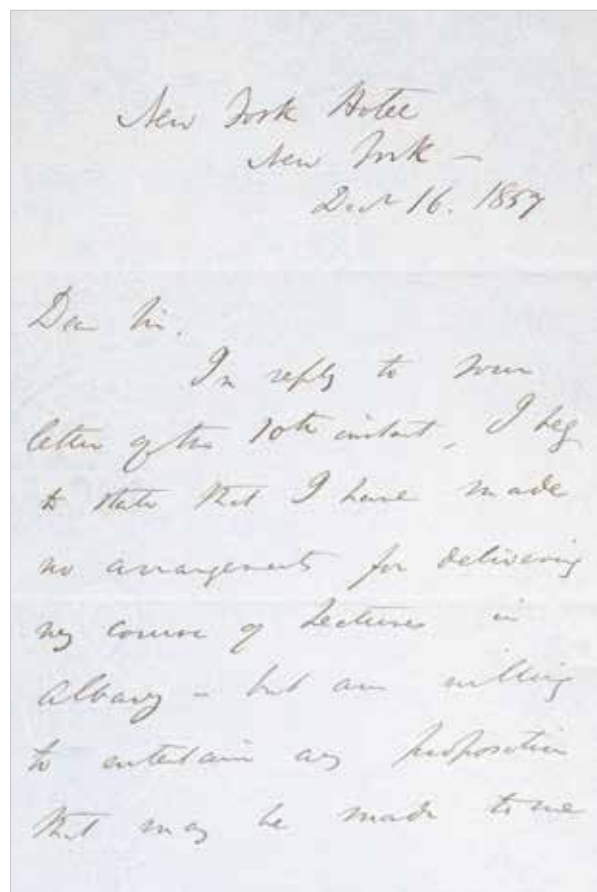 New York Hotel
New York –
Decr 16. 1857
Dear Sir.
In reply to your
letter of the 10th instant, I beg
to state that I have made
no arrangements for delivering
my course of Lectures in
Albany – but am willing
to entertain any proposition
that may be made to me